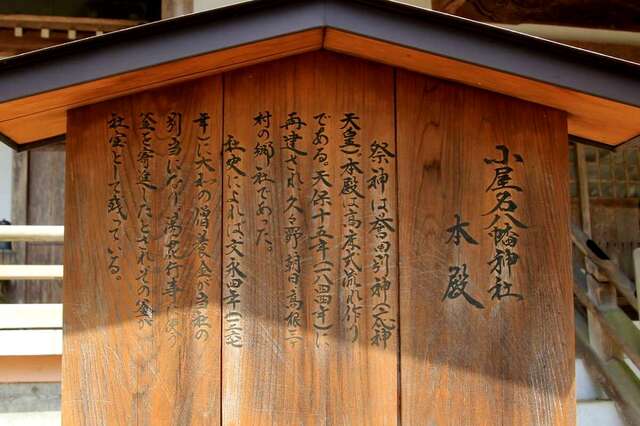 小屋名八幡神社
本殿
祭神は誉田別神(応神
天皇)本殿は高床式流れ作り
である。天保十五年(一八四四年)に
再建され久々野、朝日、高根三
村の郷社であった。
社史によれば文永四年(一二六七
年)に大和の僧 が当社の
別当になり 行事に使う
釜を寄進したとされその釜が
社宝として残っている。